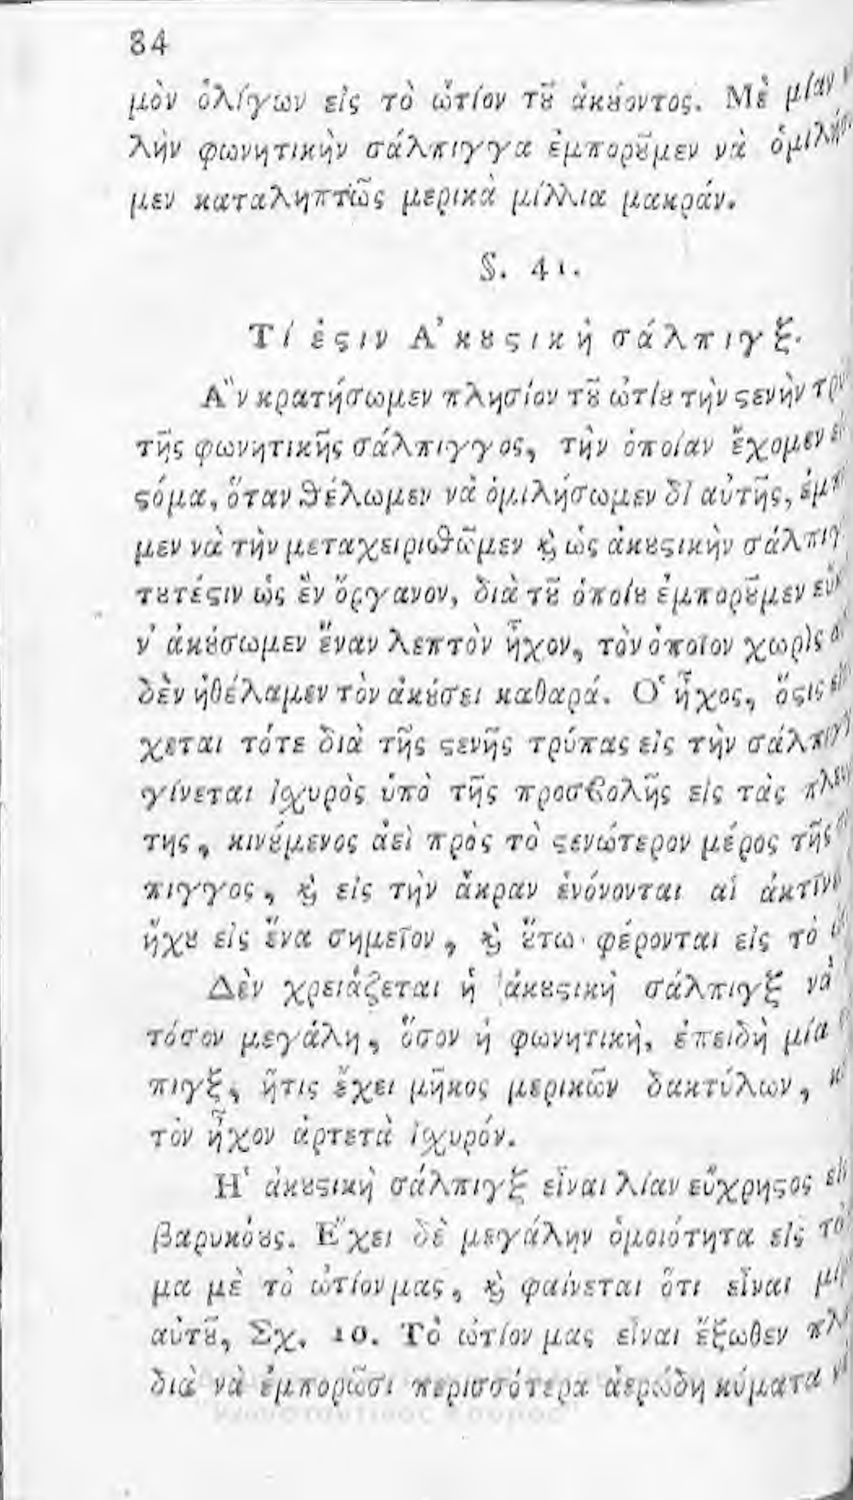 84
μὸν ὀλίγων εἰς τὸ ὠτίον τȣ͂ ἀκȣ́οντος. Μὲ μίαν
λὴν φωνητικὴν σάλπιγγα ἐμπορȣ͂μεν νὰ ὁμιλήσ
μεν καταληπτῶς μερικὰ μίλλια μακράν.
§. 41.
Τί ἐϛιν Ἀκȣϛικὴ σάλπιγξ.
Ἂν κρατήσωμεν πλησίον τȣ͂ ὠτίȣ τὴν ϛενὴν τρυ
τῆς φωνητικῆς σάλπιγγος, τὴν ὁποίαν ἔχομεν εἰ
ϛόμα, ὅταν θέλωμεν νὰ ὁμιλήσωμεν δι' αὐτῆς, ἐμπ
μεν νὰ τὴν μεταχειρισθῶμεν ϗ ὡς ἀκȣϛικὴν σάλπιγ
τȣτέϛιν ὡς ἓν ὄργανον, διὰ τȣ͂ ὁποίȣ ἐμπορȣ͂μεν εὐκ
ν' ἀκȣ́σωμεν ἕναν λεπτὸν ἦχον, τὸν ὁποῖον χωρὶς α
δὲν ἠθέλαμεν τὸν ἀκȣ́σει καθαρά. Ὁ ἦχος, ὅϛις εἰ
χεται τότε διὰ τῆς ϛενῆς τρύπας εἰς τὴν σάλπιγγ
γίνεται ἰσχυρὸς ὑπὸ τῆς προσβολῆς εἰς τὰς πλευ
της, κινȣ́μενος ἀεὶ πρὸς τὸ ϛενώτερον μέρος τῆς σ
πιγγος, ϗ εἰς τὴν ἄκραν ἑνόνονται αἱ ἀκτῖνε
ἤχȣ εἰς ἕνα σημεῖον, ϗ ȣ̔́τω φέρονται εἰς τὸ
Δὲν χρειάζεται ἡ ἀκȣϛικὴ σάλπιγξ νὰ
τόσον μεγάλη, ὅσον ἡ φωνητικὴ, ἐπειδὴ μία σ
πιγξ, ἥτις ἔχει μῆκος μερικῶν δακτύλων, κ
τὸν ἦχον ἀρτετὰ ἰσχυρόν.
Ἡ ἀκȣϛικὴ σάλπιγξ εἶναι λίαν εὔχρηϛος εἰς
βαρυκόȣς. Ἔχει δὲ μεγάλην ὁμοιότητα εἰς τὸ
μα μὲ τὸ ὠτίον μας, ϗ φαίνεται ὅτι εἶναι μί
αὐτȣ͂, Σχ. 10. Τὸ ὠτίον μας εἶναι ἔξωθεν πλ
διὰ νὰ ἐμπορῶσι περισσότερα ἀερώδη κύματα ν